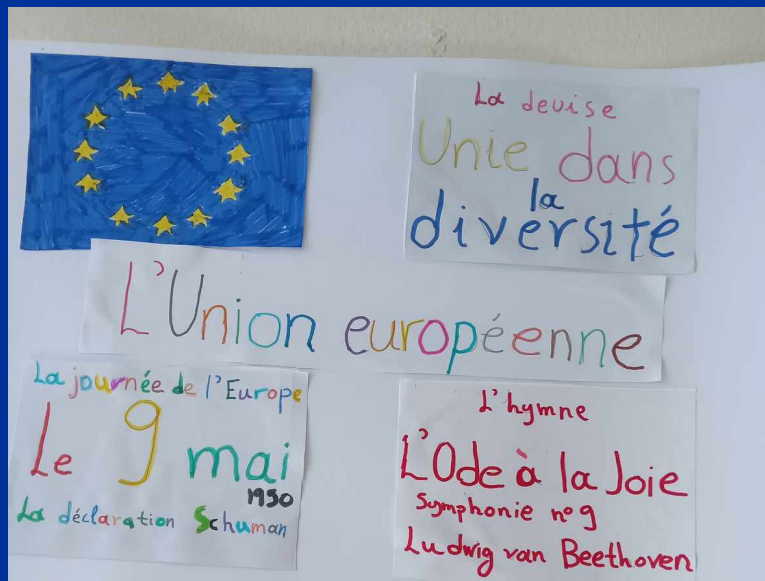 La devise
Unie dans
la
diversité
L'Union européenne
La journée de l'Europe
Le 9 mai
1950
La déclaration Schuman
L'hymne
L'Ode à la Joie
Symphonie n°9
Ludwig van Beethoven